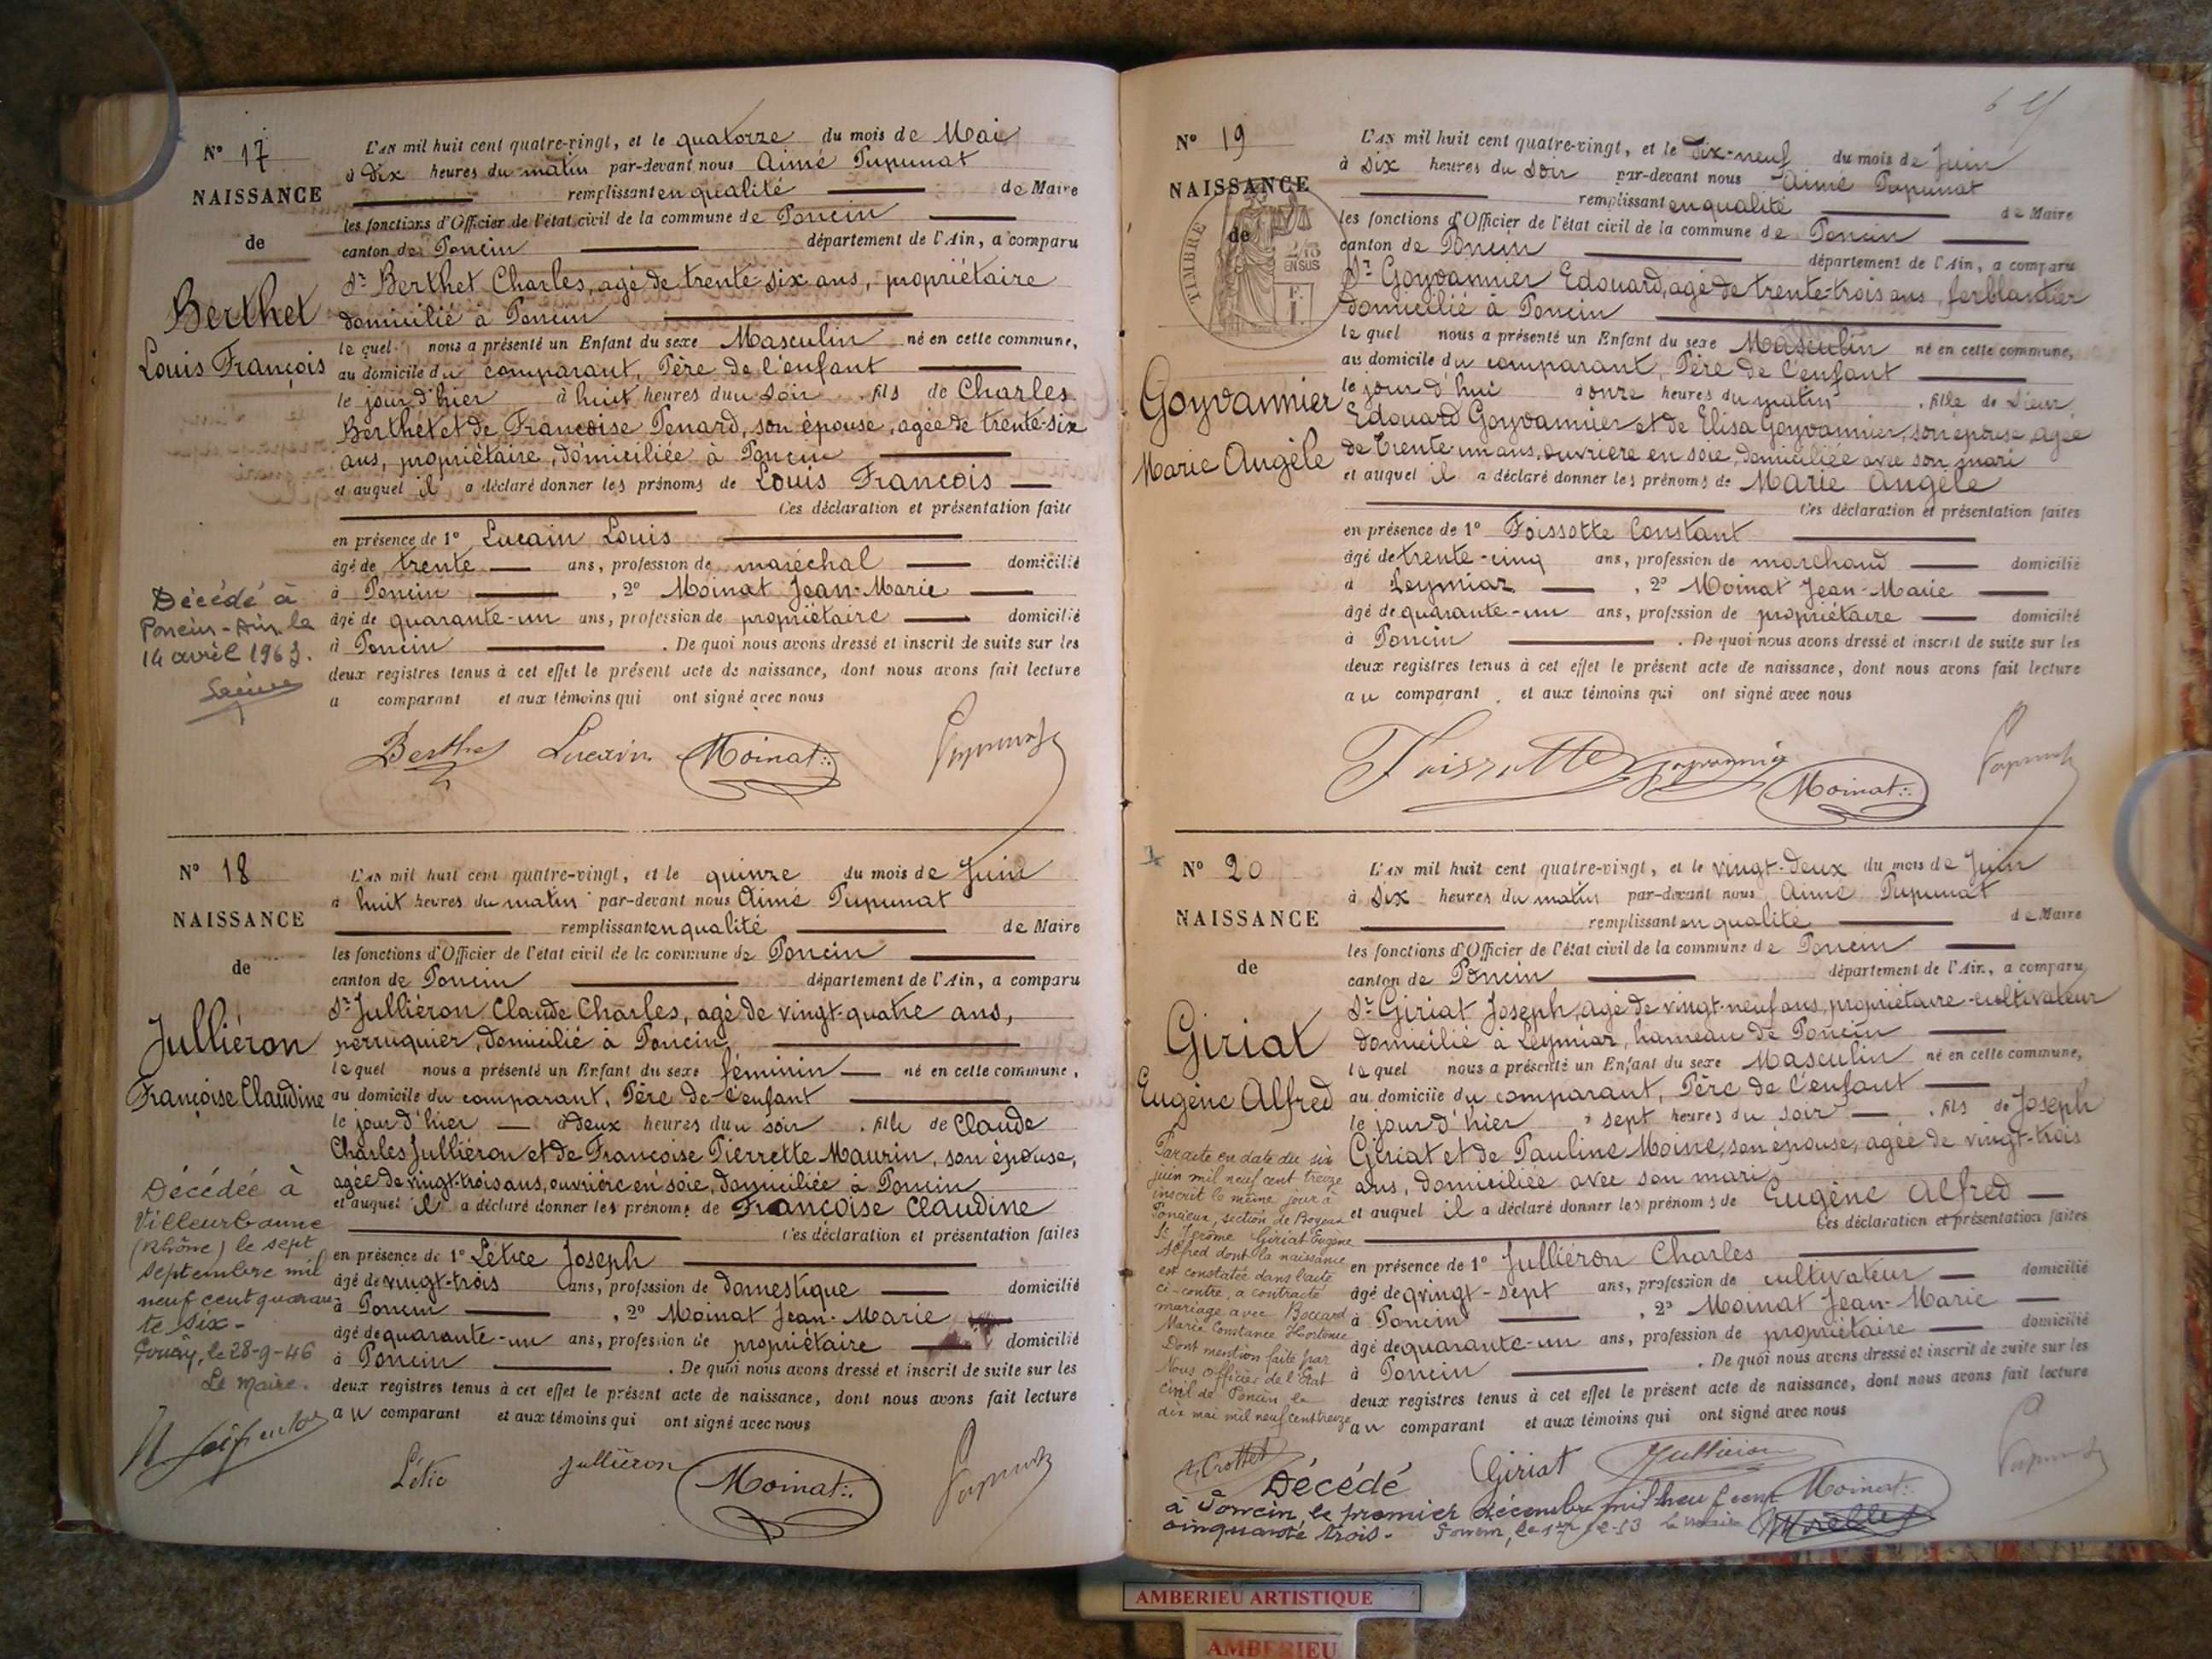 N° 17
NAISSANCE
de
Berthet
Louis François
L'AN mil huit cent quatre-vingt, et le quatorze du mois de Mai
à dix heures du matin par-devant nous Aimé Pupunat
remplissant en qualité de Maire
les fonctions d'Officier de l'état civil de la commune de Poncin
canton de Poncin département de l'Ain, a comparu
Sr Berthet Charles, agé de trente six ans, propriétaire
domicilié à Poncin
lequel nous a présenté un Enfant du sexe Masculin né en cette commune,
au domicile du comparant, Père de l'enfant
le jour d'hier à huit heures du soir . fils de Charles
Berthet et de Françoise Penard, son épouse, agée de trente-six
ans, propriétaire, domiciliée à Poncin
et auquel il a déclaré donner les prénoms de Louis François
Ces déclaration et présentation faites
en présence de 1° Lucain Louis
âgé de trente ans, profession de maréchal domicilié
à Poncin , 2° Moinat Jean-Marie
âgé de quarante-un ans, profession de propriétaire domicilié
à Poncin . De quoi nous avons dressé et inscrit de suite sur les
deux registres tenus à cet effet le présent acte de naissance, dont nous avons fait lecture
a comparant et aux témoins qui ont signé avec nous
Décédé à
Poncin-Ain le
14 avril 1963.
Berthet Lucain Moinat Pupunat
N° 18
NAISSANCE
de
Julliéron
Françoise Claudine
L'AN mil huit cent quatre-vingt, et le quinze du mois de Juin
à huit heures du matin par-devant nous Aimé Pupunat
remplissant en qualité de Maire
les fonctions d'Officier de l'état civil de la commune de Poncin
canton de Poncin département de l'Ain, a comparu
Sr Julliéron Claude Charles, agé de vingt-quatre ans,
perruquier, domicilié à Poncin,
lequel nous a présenté un Enfant du sexe féminin né en cette commune,
au domicile du comparant, Père de l'enfant
le jour d'hier à deux heures du soir . fille de Claude
Charles Julliéron et de Françoise Pierrette Maurin, son épouse,
agée de vingt-trois ans, ouvrière en soie, domiciliée à Poncin
et auquel il a déclaré donner les prénoms de Françoise Claudine
Ces déclaration et présentation faites
en présence de 1° Létice Joseph
âgé de vingt-trois ans, profession de domestique domicilié
à Poncin , 2° Moinat Jean-Marie
âgé de quarante-un ans, profession de propriétaire domicilié
à Poncin . De quoi nous avons dressé et inscrit de suite sur les
deux registres tenus à cet effet le présent acte de naissance, dont nous avons fait lecture
au comparant et aux témoins qui ont signé avec nous
Décédée à
Villeurbanne
(Rhône) le sept
septembre mil
neuf cent quaran-
te six-
le 28-9-46
Le Maire.
Julliéron Moinat Pupunat
N° 19
NAISSANCE
de
TIMBRE
2/10
EN SUS
Goyvannier
Marie Angèle
L'AN mil huit cent quatre-vingt, et le dix-neuf du mois de Juin
à six heures du soir par-devant nous Aimé Pupunat
remplissant en qualité de Maire
les fonctions d'Officier de l'état civil de la commune de Poncin
canton de Poncin département de l'Ain, a comparu
Sr Goyvannier Edouard, agé de trente-trois ans, ferblantier
domicilié à Poncin
lequel nous a présenté un Enfant du sexe Masculin né en cette commune,
au domicile du comparant, Père de l'enfant
le jour d'hui à onze heures du matin . fille de Sieur
Edouard Goyvannier et de Elisa Goyvannier, son épouse, agée
de trente-un ans, ouvrière en soie, domiciliée avec son mari
et auquel il a déclaré donner les prénoms de Marie Angèle
Ces déclaration et présentation faites
en présence de 1° Foissotte Constant
âgé de trente-cinq ans, profession de marchand domicilié
à Leymiaz , 2° Moinat Jean-Marie
âgé de quarante-un ans, profession de propriétaire domicilié
à Poncin . De quoi nous avons dressé et inscrit de suite sur les
deux registres tenus à cet effet le présent acte de naissance, dont nous avons fait lecture
au comparant et aux témoins qui ont signé avec nous
Foissotte Goyvannier Moinat Pupunat
N° 20
NAISSANCE
de
Giriat
Eugène Alfred
L'AN mil huit cent quatre-vingt, et le vingt-deux du mois de Juin
à six heures du matin par-devant nous Aimé Pupunat
remplissant en qualité de Maire
les fonctions d'Officier de l'état civil de la commune de Poncin
canton de Poncin département de l'Ain, a comparu
Sr Giriat Joseph, agé de vingt-neuf ans, propriétaire-cultivateur
domicilié à Leymiaz, hameau de Poncin
lequel nous a présenté un Enfant du sexe Masculin né en cette commune,
au domicile du comparant, Père de l'enfant
le jour d'hier à sept heures du soir . fils de Joseph
Giriat et de Pauline Moine, son épouse, agée de vingt-trois
ans, domiciliée avec son mari
et auquel il a déclaré donner les prénoms de Eugène Alfred
Ces déclaration et présentation faites
en présence de 1° Julliéron Charles
âgé de vingt-sept ans, profession de cultivateur domicilié
à Poncin , 2° Moinat Jean-Marie
âgé de quarante-un ans, profession de propriétaire domicilié
à Poncin . De quoi nous avons dressé et inscrit de suite sur les
deux registres tenus à cet effet le présent acte de naissance, dont nous avons fait lecture
au comparant et aux témoins qui ont signé avec nous
Par acte en date du six
juin mil neuf cent treize
inscrit le même jour à
Poncieux, section de Boyeux
St Jérôme Giriat Eugène
Alfred dont la naissance
est constatée dans l'acte
ci-contre, a contracté
mariage avec Boccard
Marie Constance Hortense
Dont mention faite par
Nous officier de l'Etat
civil de Poncin le
dix mai mil neuf cent treize
Crottet
Giriat Julliéron Moinat Pupunat
Décédé
à Poncin le premier décembre mil neuf cent
cinquante trois.
AMBERIEU ARTISTIQUE
AMBERIEU